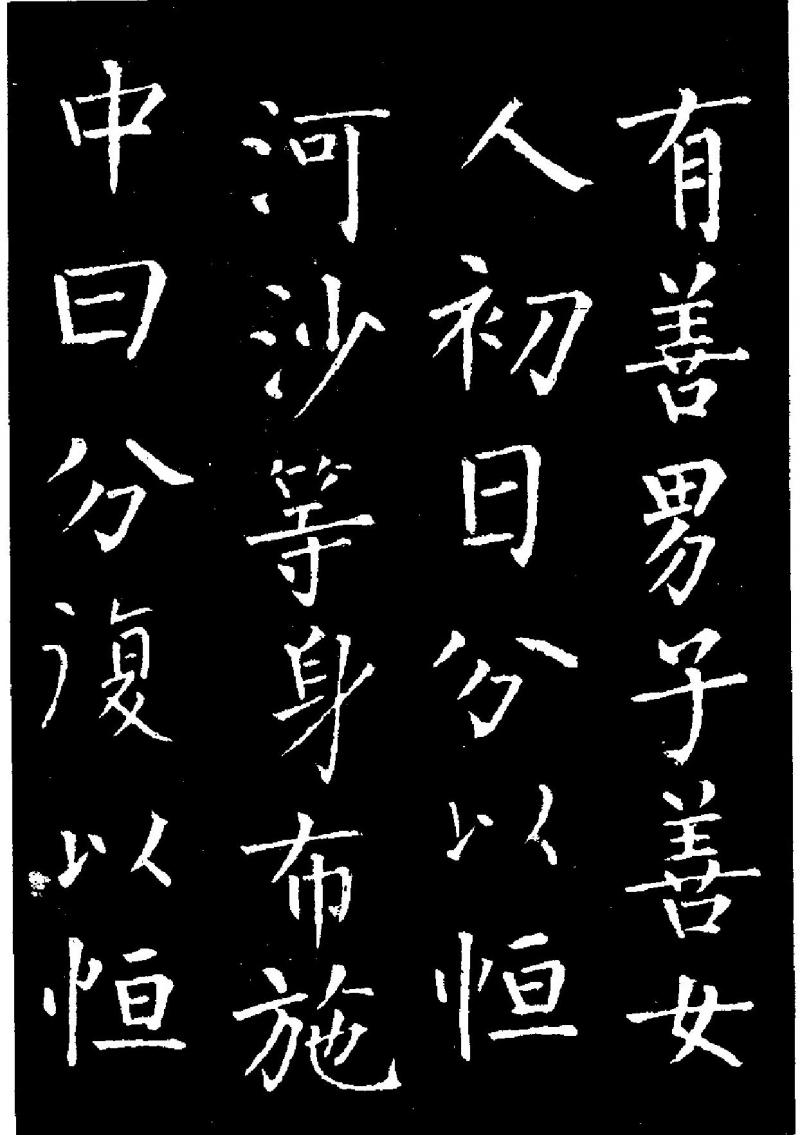 有善男子善女
人初日分以恒
河沙等身布施
中日分復以恒